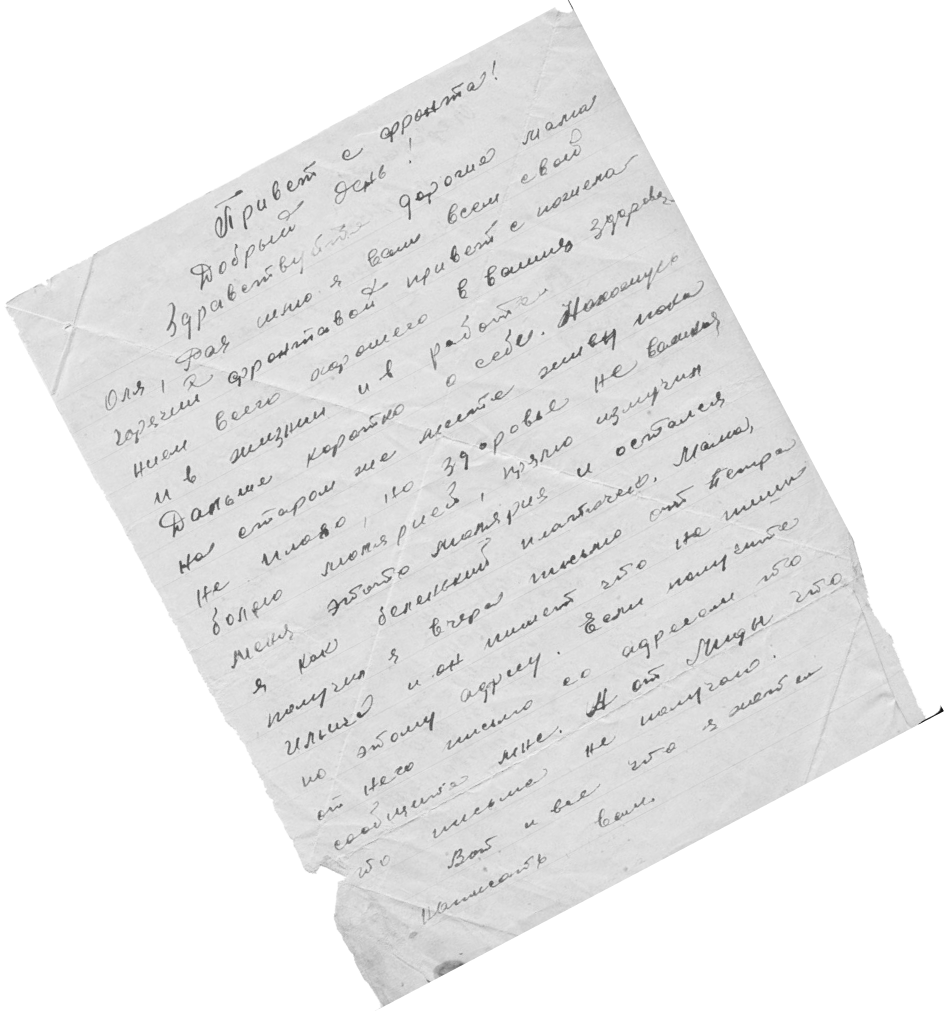 Привет с фронта!
Добрый день!
Здравствуйте дорогие мама
Оля, Рая шлю я вам всем свой
горячий фронтавой привет с пожела
нием всего хорошего в вашия здоровье
и в жизни и в работе
Дальше коротко о себе. Нахожусь
на старом же месте живу пока
не плохо, но здоровье не важная
болею молярией, прямо измучил
меня этото молярия и остался
я как беленький платочек. Мама,
получил я вчера письмо от Петра
Ильича и он пишет что не пиши
по этому адресу. Если получите
от него письмо со адресом то
сообщите мне. А от Миды что
то письма не получаю!
Вот и все что я хотел
написать вам.